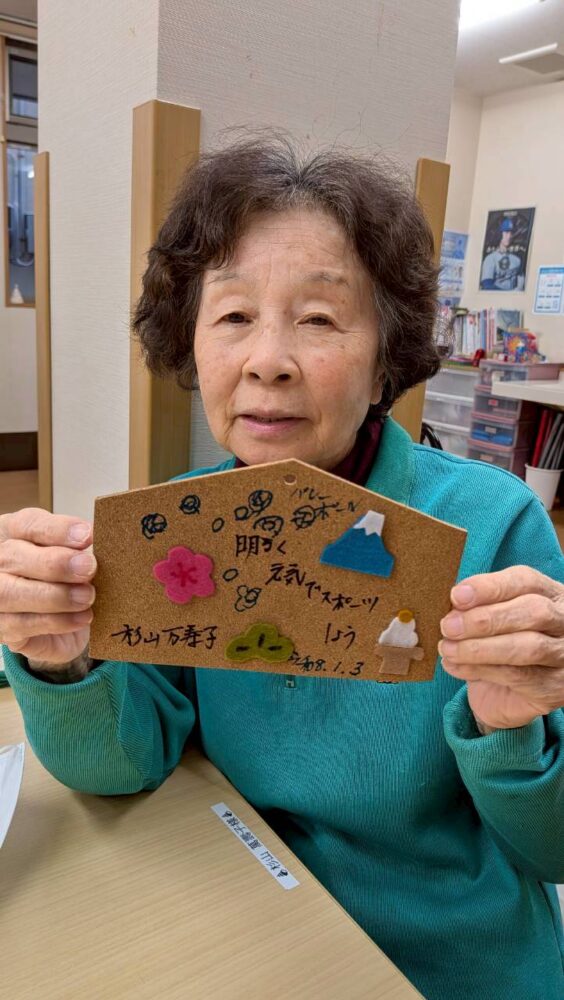 バレー
ボール
明るく
元気でスポーツ
しよう
杉山万寿子
令和8.1.3